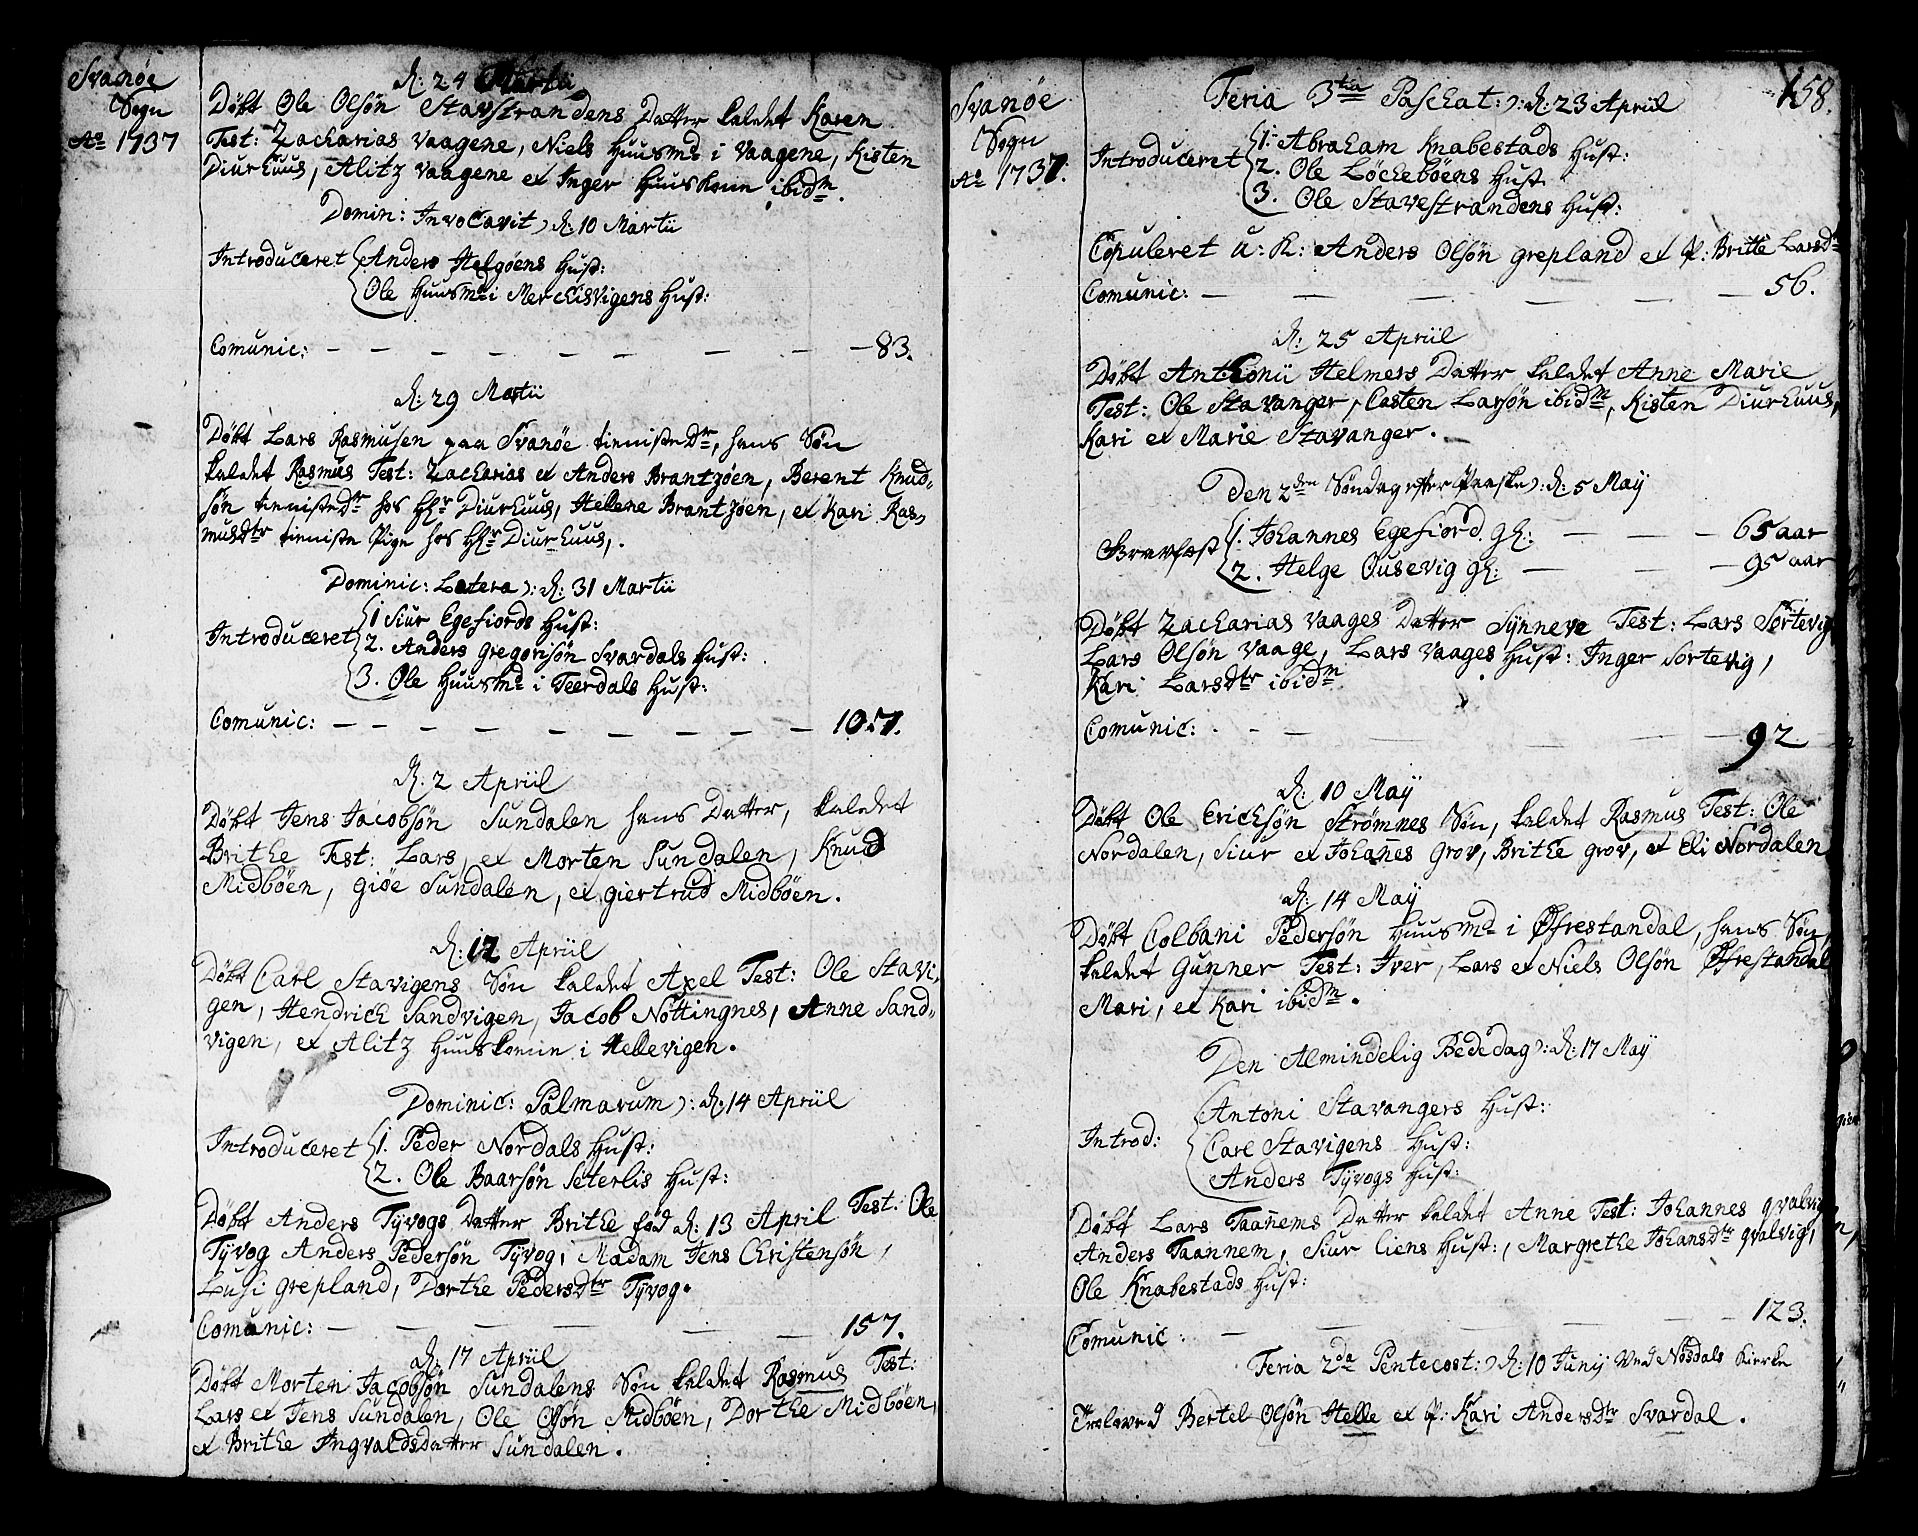 Svanöe
Sogn
Ao 1737
d: 24 Martii
Döbt Ole Olsön Stavstrandens Datter kaldet Karen
Test: Zacharias Vaagene, Niels Huusmd i Vaagene, Kisten
Diurhuus, Alitz Vaagene et Inger Huuskone ibidm.
Domin: Invocavit): d: 10 Martii
Introduceret Anders Helgöens Hust:
Ole Huusmd i Merchisvigens Hust:
Comunic: — — — — — — — — 83.
d: 29 Martii
Döbt Lars Rasmusen paa Svanöe tienisteDr, hans Sön
kaldet Rasmus Test: Zacharias et Anders Brantzöen, Berent Knud-
sön tienisteDr hos Hr Diurhuus, Helene Brantzöen, et Kari Ras-
musdtr tieniste Pige hos Hr Diurhuus,.
Dominic: Lætera): d: 31 Martii
Introduceret 1 Siur Egefiords Hust:
2. Anders Gregorisön Svardals Hust:
3. Ole Huusmd i Teerdals Hust:
Comunic: — — — — — — — — 107.
d. 2 Apriil
Döbt Jens Jacobsön Sundalen hans Datter, kaldet
Brithe Test: Lars, et Morten Sundalen, Knud
Midböen, giöe Sundalen, et giertrud Midböen.
d: 12 Apriil
Döbt Carl Stavigens Sön kaldet Axel Test: Ole Stavi-
gen, Hendrich Sandvigen, Jacob Nöttingnes, Anne Sand-
vigen, et Alitz Huuskonen i Hellevigen.
Dominic: Palmarum): d. 14 Apriil
Introduceret 1. Peder Nordals Hust:
2. Ole Baarsön Seterlis Hust:
Döbt Anders Tyvogs Datter Brithe föd d: 13 April Test: Ole
Tyvog Anders Pedersön Tyvog, Madam Jens Christensön,
Lusi grepland, Dorthe Pedersdtr Tyvog.
Comunic: — — — — — 157.
d. 17 Apriil
Döbt Morten Jacobsön Sundalens Sön kaldet Rasmus Test:
Lars et Jens Sundalen, Ole Olsön Midböen, Dorthe Midböen,
et Brithe Ingvaldsdatter Sundalen.
158.
Svanöe
Sogn
Ao 1737.
Feria 3tia Paschat:): d: 23 Apriil
Introduceret 1. Abraham Knabestads Hust:
2. Ole Löcheböens Hust
3. Ole Stavestrandens Hust:
Copuleret u: k: Anders Olsön grepland et p: Britte Larsdr
Comunic: — — — — — — 56.
d. 25 Apriil
Döbt Anthonii Helmers Datter kaldet Anne Marie
Test: Ole Stavanger, Casten Larsön ibidm, Kisten Diurhuus,
Kari et Marie Stavanger.
Den 2den Söndag efter Paaske): d: 5 May
1. Johannes Egefiord gl: — — — 65 aar
2. Helge Ousevig gl: — — — 95 aar
Döbt Zacharias Vaages Datter Synneve Test: Lars Sörtevig
Lars Olsön Vaage, Lars Vaages Hust: Inger Sortevig,
Kari Larsdtr ibidm
Comunic: — — — — — 92
d. 10 May
Döbt Ole Ericksön Strömnes Sön, kaldet Rasmus Test: Ole
Nordalen, Siur et Johanes Grov, Brithe grov, et Eli Nordalen
d: 14 May
Döbt Colbani Pedersön Huusmd i Öfrestandal, hans Sön,
kaldet Gunner Test: Iver, Lars et Niels Olsön Öfrestandal
Mari, et Kari ibidm.
Den Almindelig Bededag): d: 17 May
Introd: Antoni Stavangers Hust:
Carl Stavigens Hust:
Anders Tyvogs Hust:
Döbt Lars Taanems Datter kaldet Anne Test: Johannes qvalvig
Anders Taannem, Siur Liens Hust:, Margrethe Johansdtr qvalvig,
Ole Knabestads Hust:
Comunic: — — — — — 123.
Feria 2da Pentecost:): d: 10 Junij Ved Nordals Kierke
Troloved Bertel Olsön Helle et p: Kari Andersdtr Svardal.